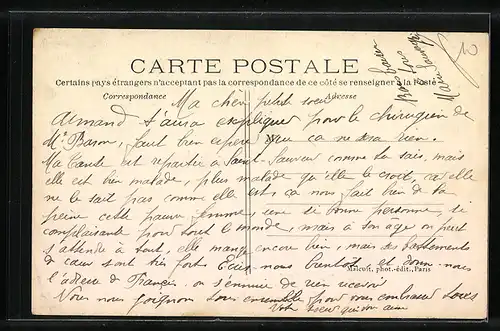 CARTE POSTALE
Certains pays étrangers n'acceptant pas la correspondance de ce côté se renseigner à la Poste
Correspondance Adresse
Ma chère petite sœur
Armand t'aura expliquer pour le chirurgien de
Mr Baron, faut bien espérer que ça ne sera rien.
Ma Tante est repartie à Saint-Sauveur comme tu sais, mais
elle est bien malade, plus malade qu'elle le croit, car elle
ne le sait pas, comme elle est, ça nous fait bien de la
peine cette pauvre femme, une si bonne personne, si
complaisante pour tout le monde, mais à son âge on peut
s'attendre à tout, elle mange encore bien, mais ses battements
de cœur sont très fort. Ecris-nous bientôt et donne-nous
l'adresse de Francis, on s'ennuie de rien recevoir
phot.-édit., Paris
Nous nous joignons tous ensemble pour vous embrasser tous
Votre sœur qui vous aime